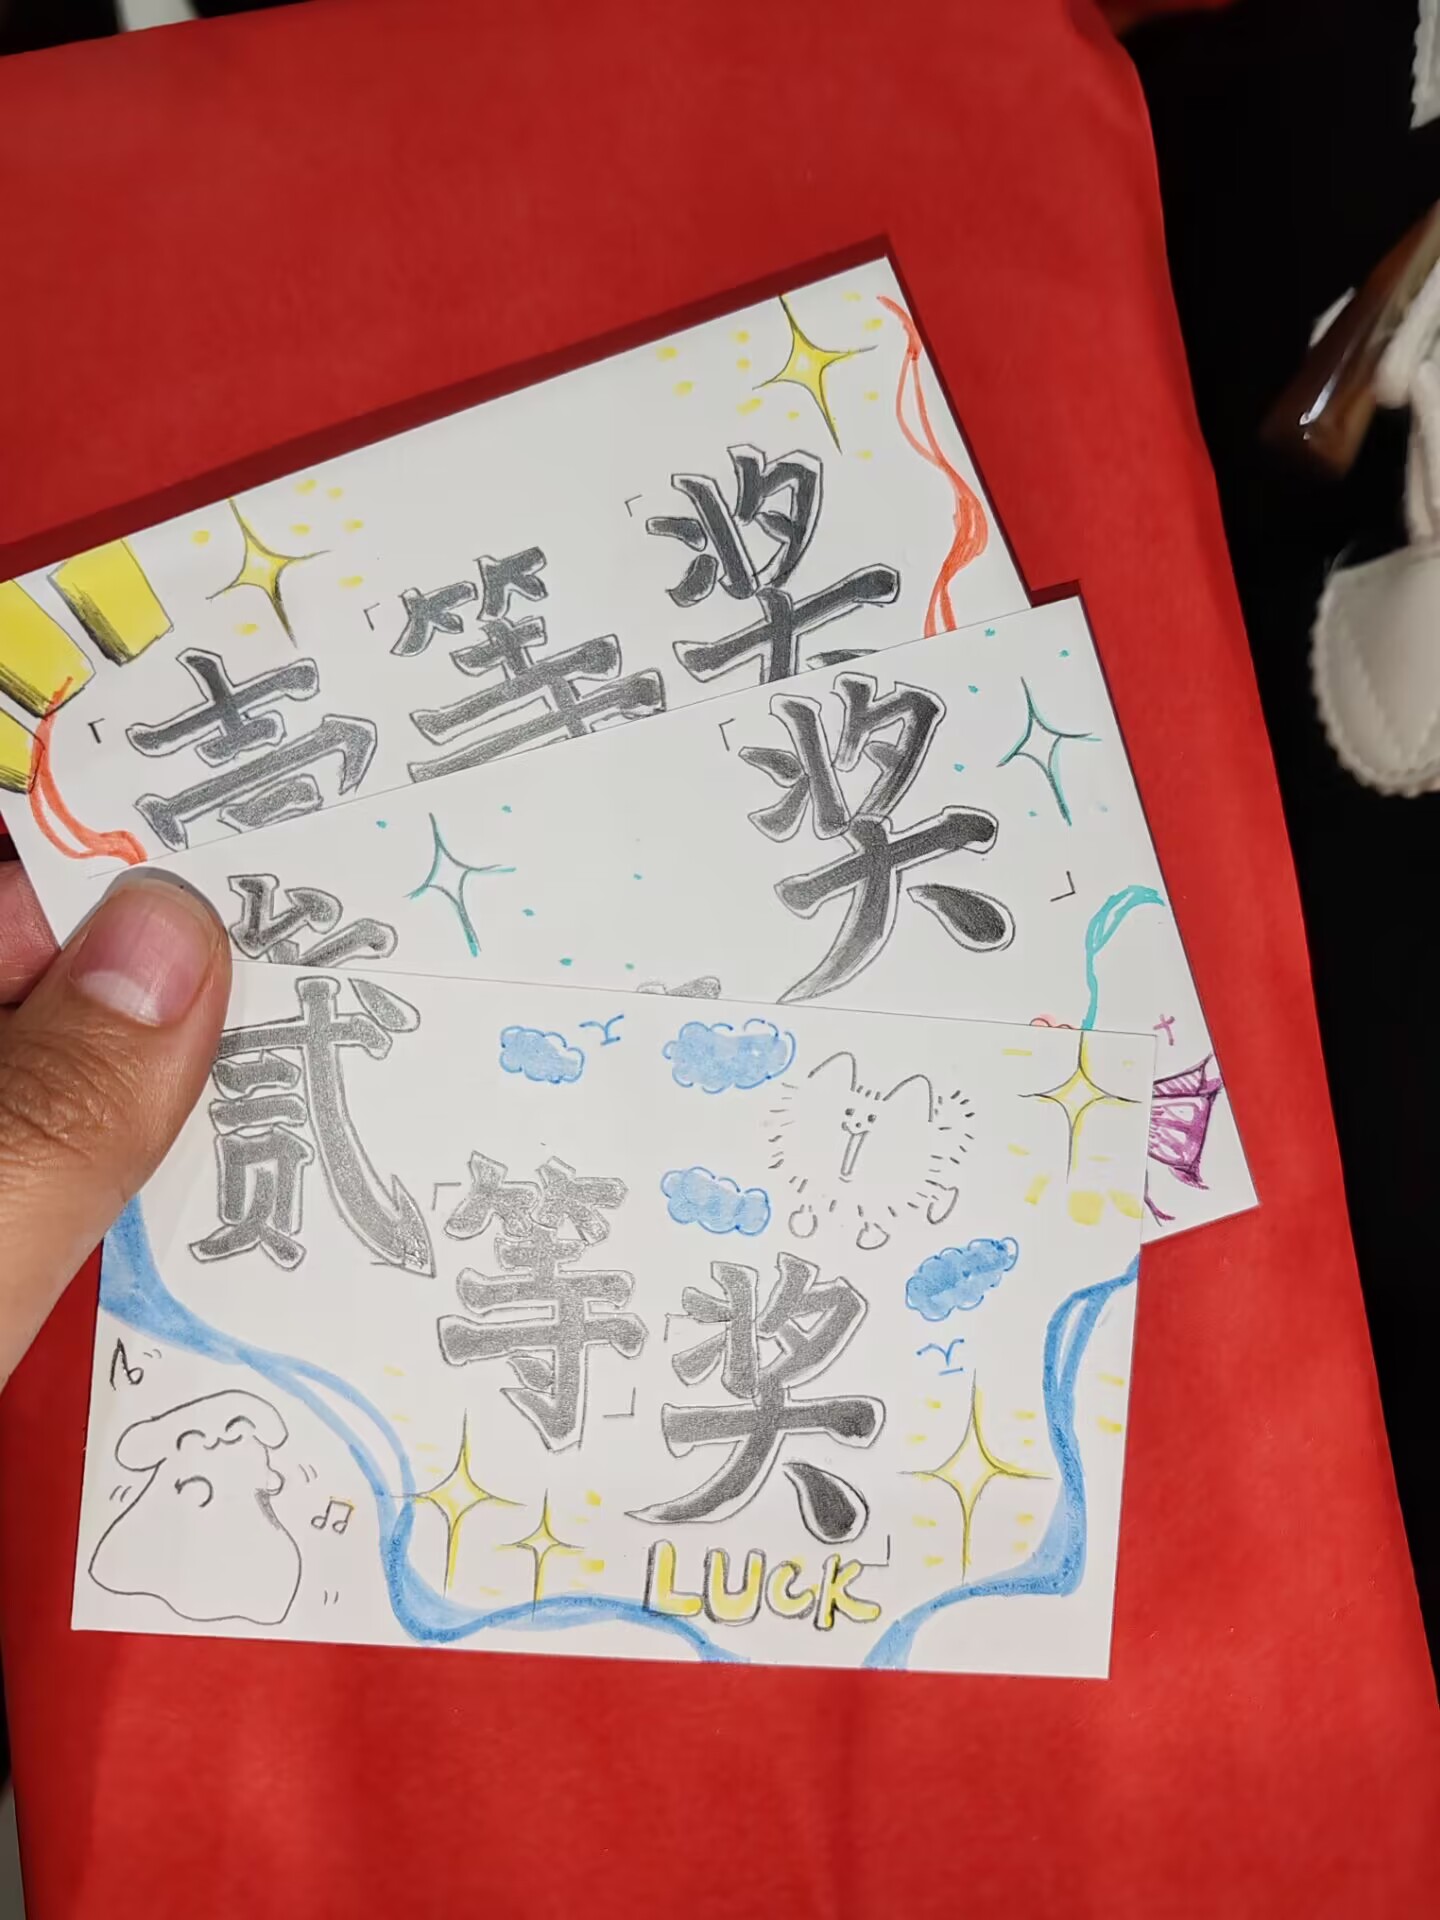 壹等奖
奖
贰等奖
LUCK